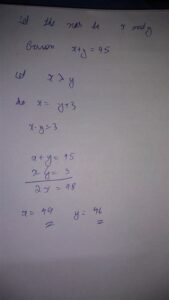 let the nos be x and y
Given x+y = 95
let x > y
so x = y+3
x-y=3
x+y = 95
x-y = 3
2x = 98
x = 49 y = 46